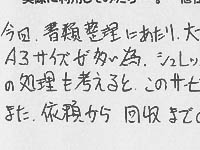 今回、書類整理にあたり、大
A3サイズが多い為、シュレッ
の処理も考えると、このサービ
また、依頼から 回収までの